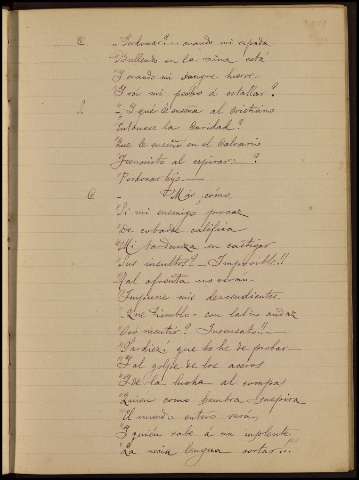 C. "¿Perdonar?... cuando mi espada
"Bullendo en la vaina está
"I cuando mi sangre hierve
"I vá mi pecho á estallar?
"¿I que le enseña al cristiano
"Entonces la Caridad?
"Que le enseñó en el Calvario
"Jesucristo al espirar ?
"Perdonar hijo.—
C. — "Más, cómo,
"Si mi enemigo procaz
"De cobarde califica
"Mi tardanza en castigar
"Sus insultos?— Imposible!!
"Tal afrenta no verán
"Impune mis descendientes.
"Que tiemblo con labio audaz
"Oso mentir? Insensato!!—
"Pardiez, que lo he de probar
"I al golpe de los aceros
"I de la lucha al compás
"Quien como hembra
"El mundo entero verá,
"I quién sabe á un insolente
"La necia lengua cortar!!!